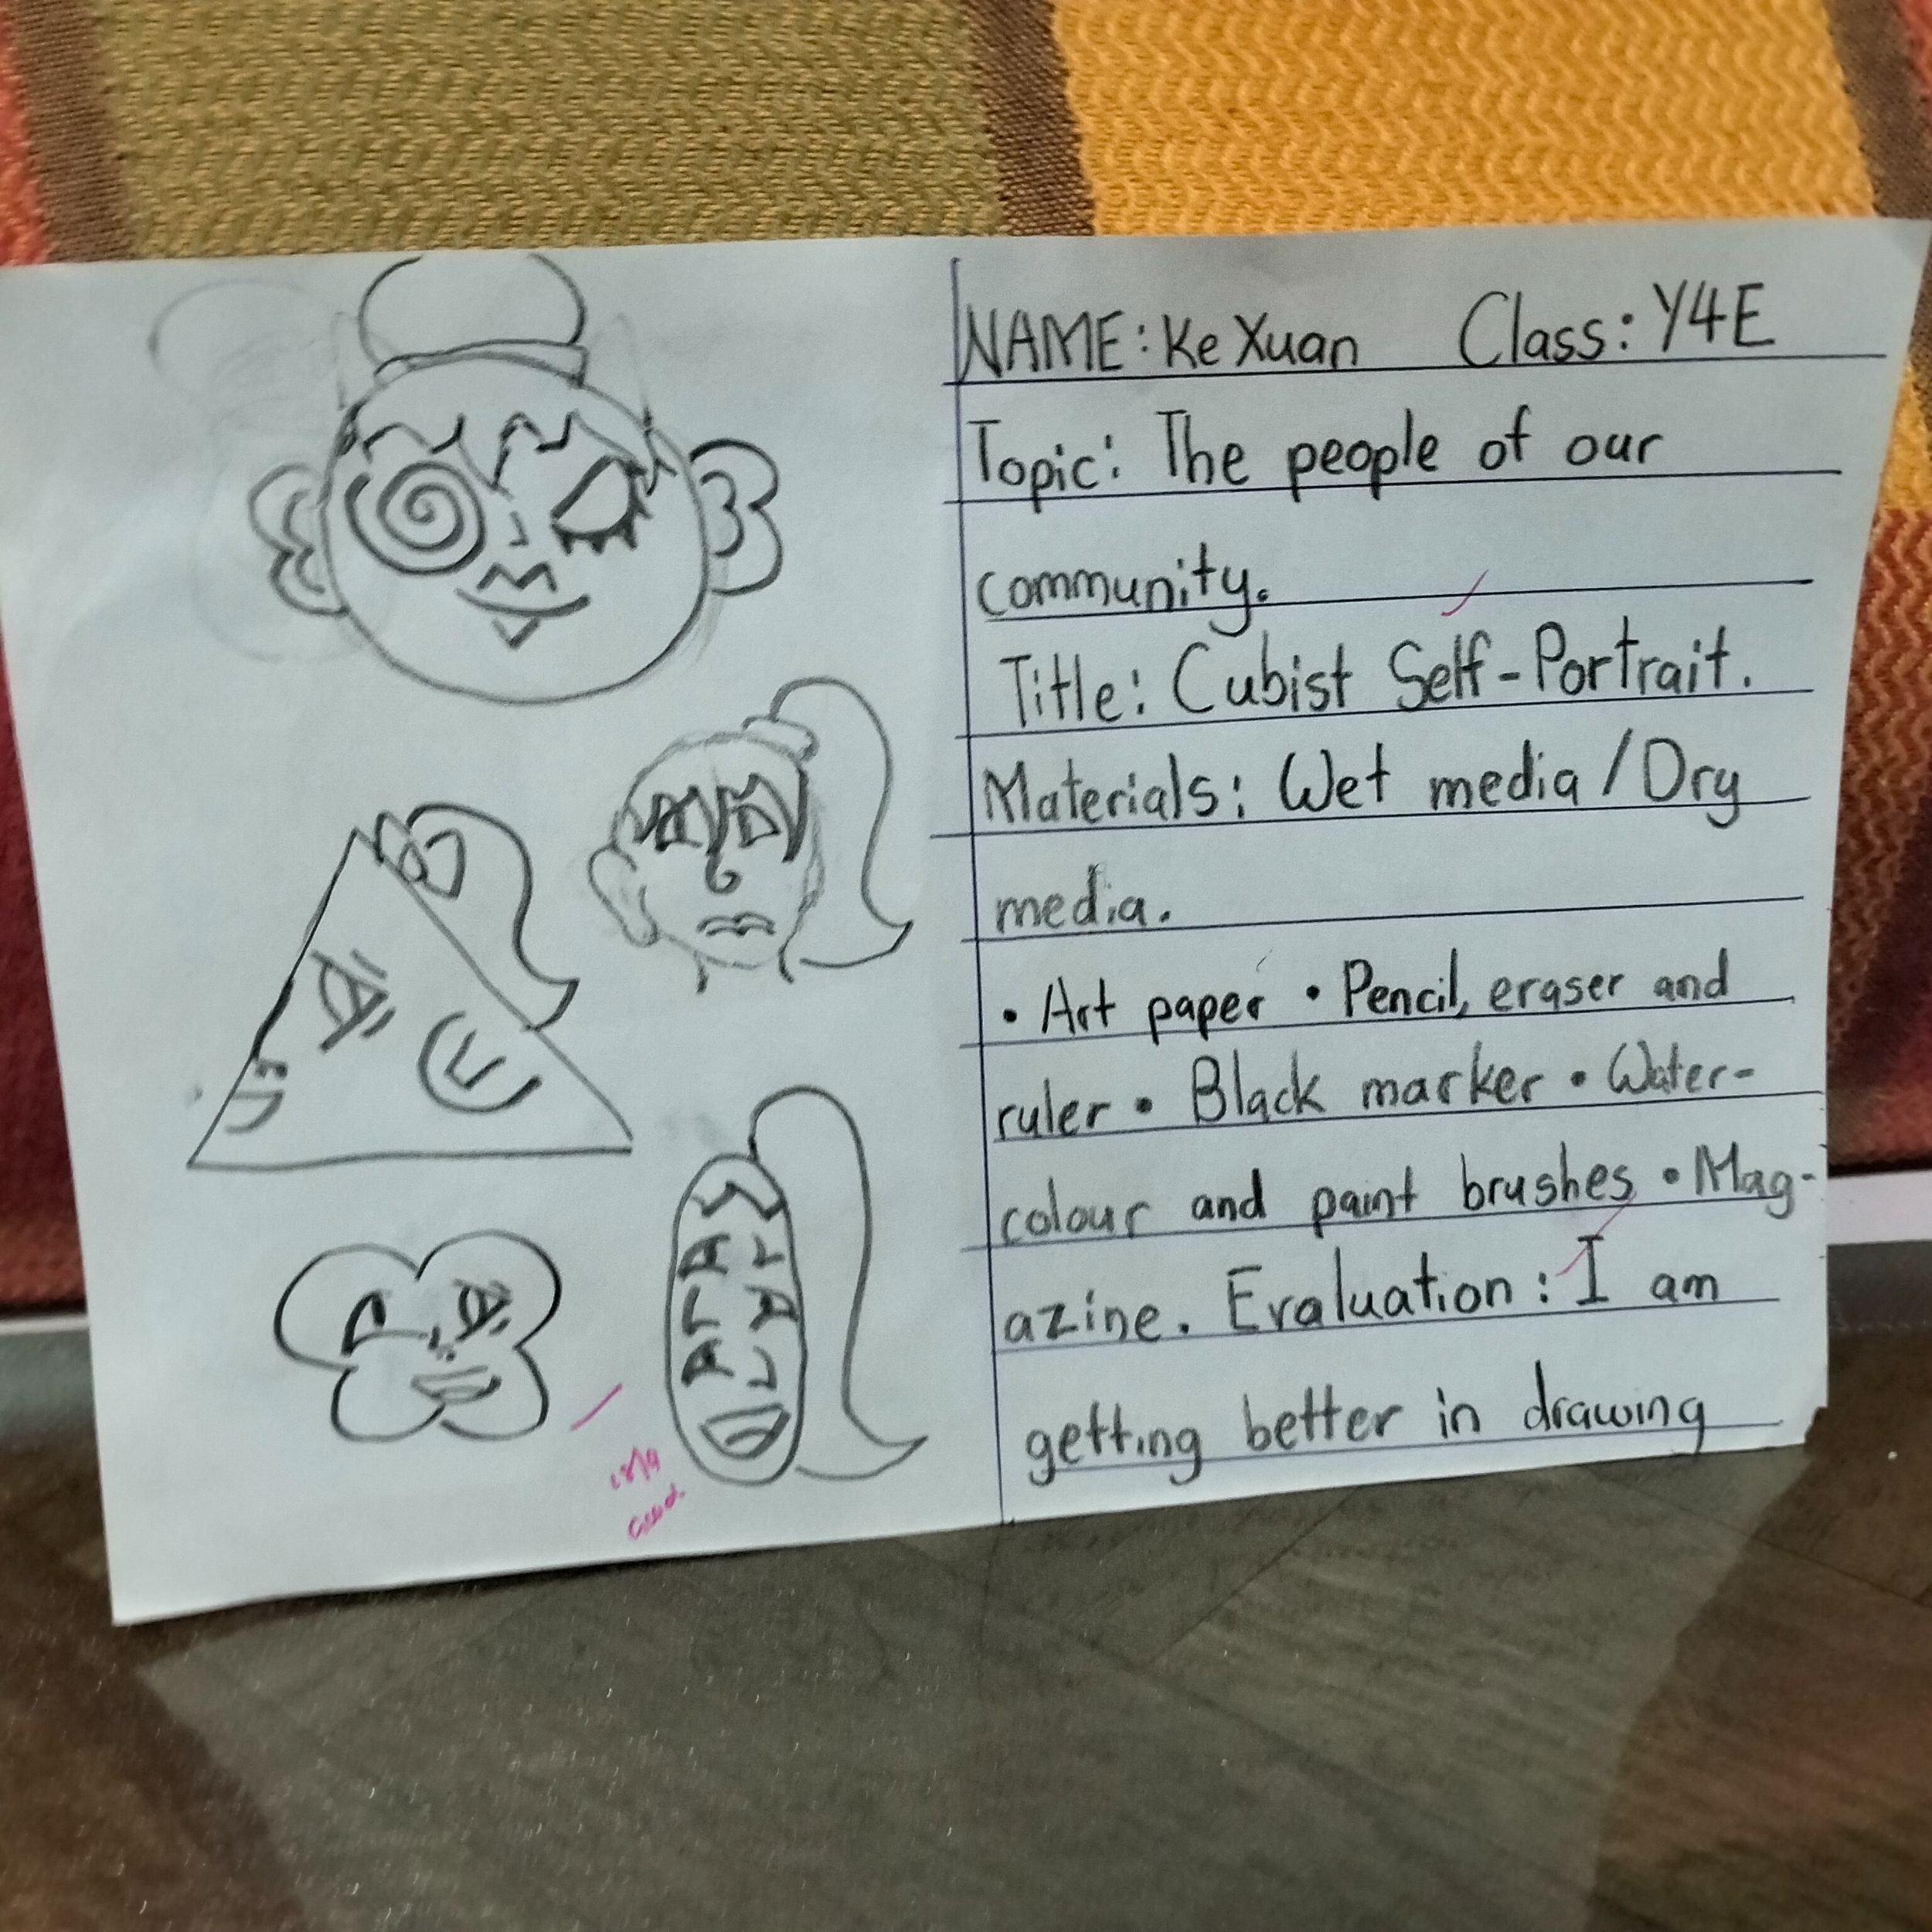 NAME: Ke Xuan Class: Y4E
Topic: The people of our
community.
Title: Cubist Self-Portrait.
Materials: Wet media / Dry
media.
• Art paper • Pencil, eraser and
ruler • Black marker • Water-
colour and paint brushes • Mag-
azine. Evaluation: I am
getting better in drawing
Good